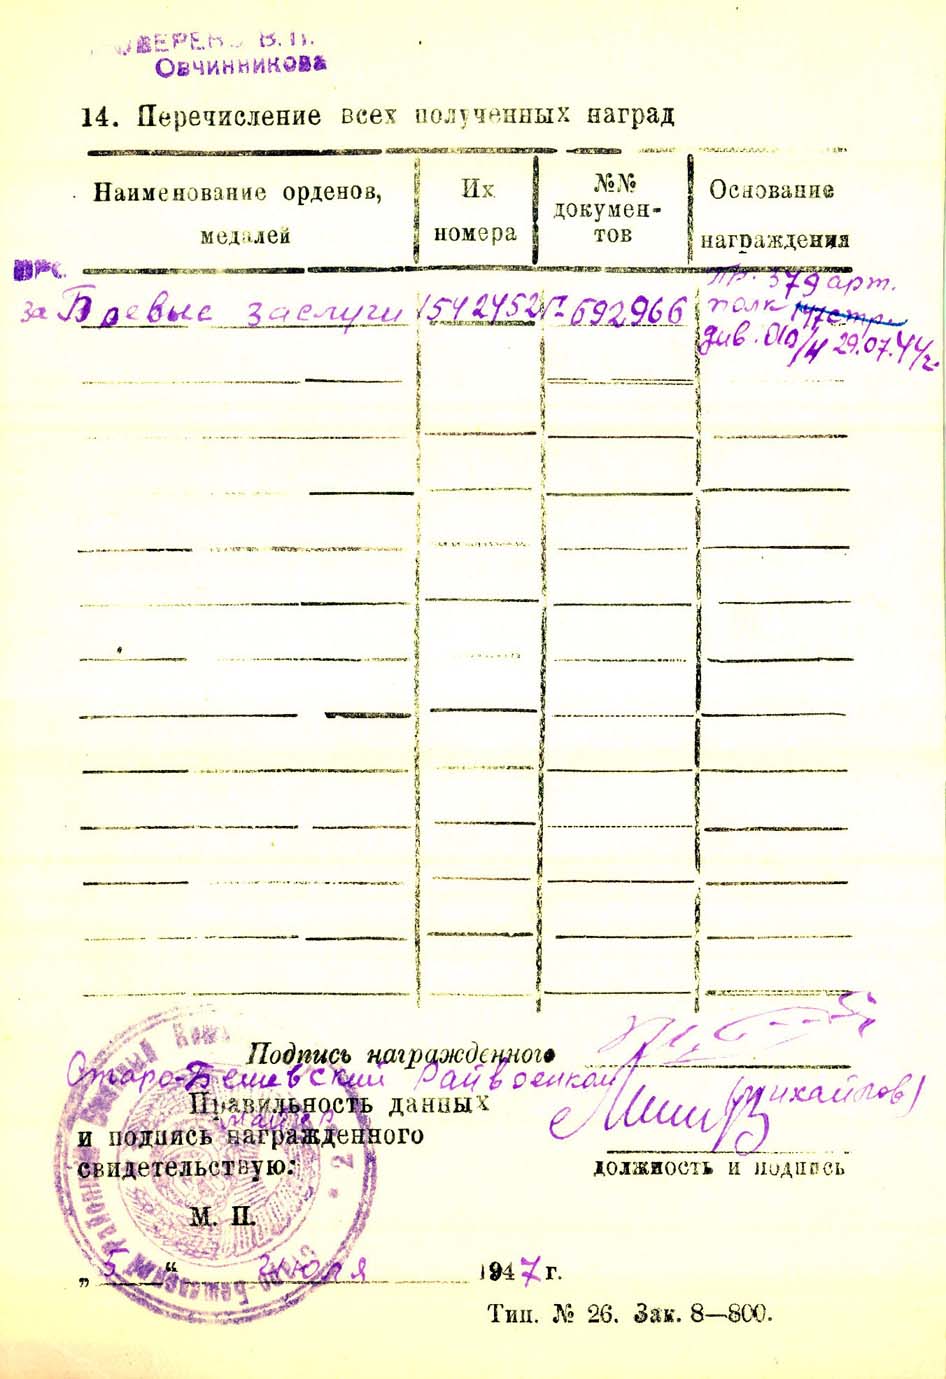 ПРОВЕРЕНО В.П.
Овчинникова
14. Перечисление всех полученных наград
Наименование орденов, медалей
Их номера
№№ докумен-
тов
Основание награждения
За Боевые заслуги 1542452 Г 692966
Пр. 379 арт.
полк
див. 010/н 29.07.44г.
Подпись награжденного
Старо-Бешевский Райвоенком
Правильность данных
майор
(Михайлов)
и подпись награжденного
свидетельствую:
должность и подпись
М. П.
„5“ июля 1947 г.
Тип. № 26. Зак. 8—800.